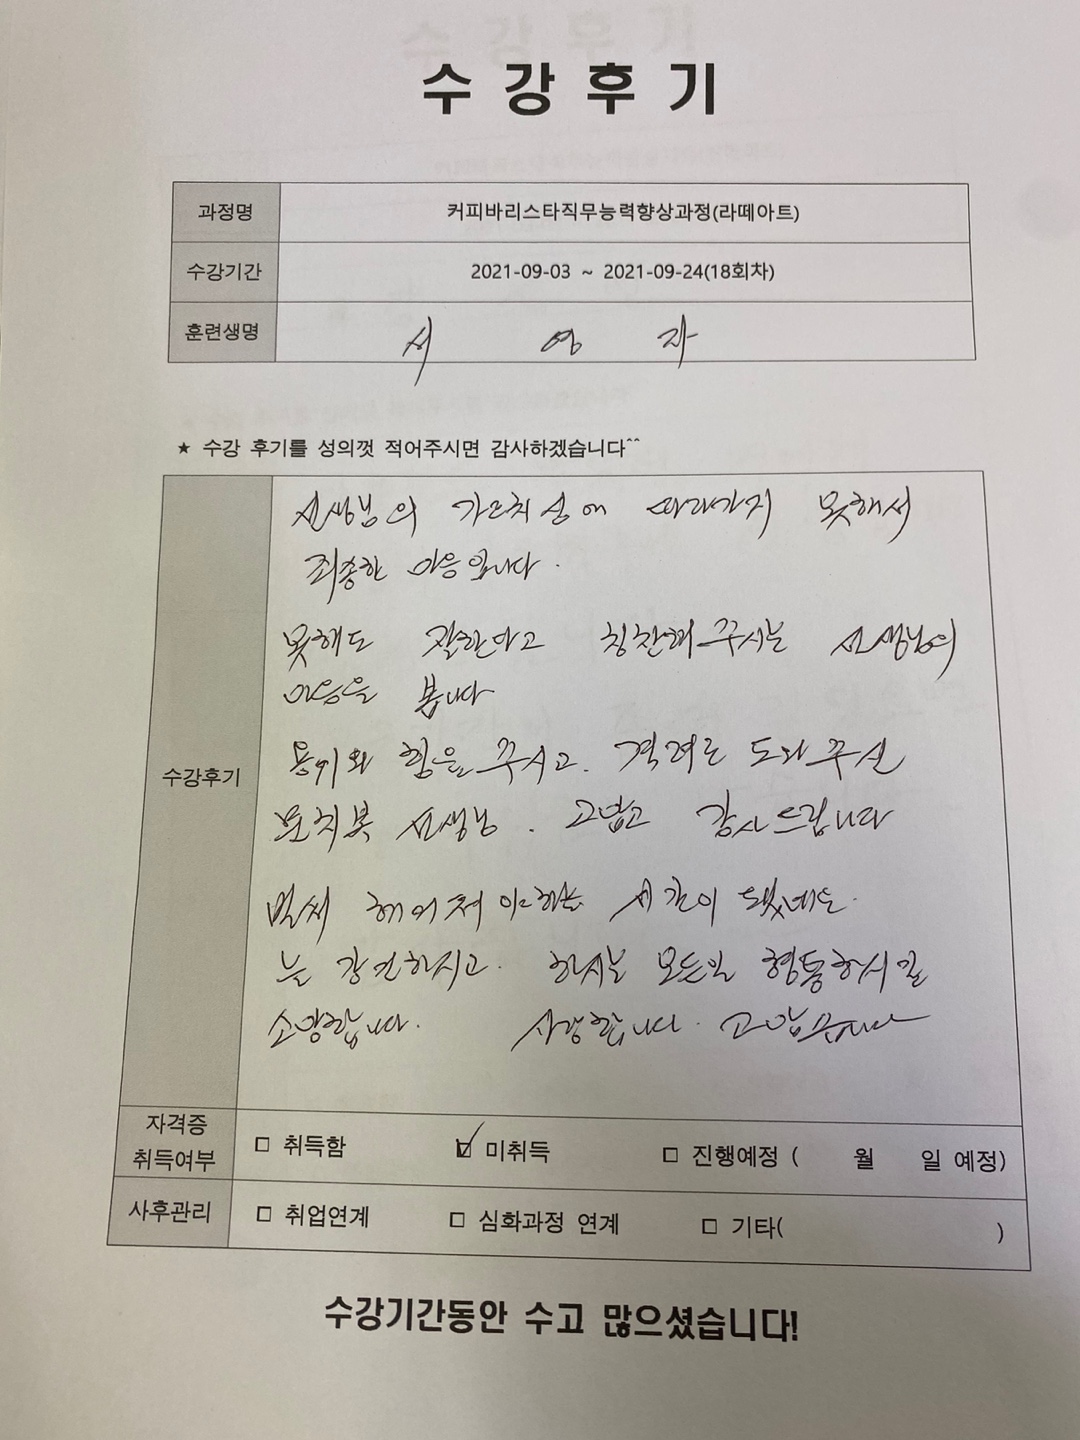 수 강 후 기
과정명 커피바리스타직무능력향상과정(라떼아트)
수강기간 2021-09-03 ~ 2021-09-24(18회차)
훈련생명 서 영 자
★ 수강 후기를 성의껏 적어주시면 감사하겠습니다^^
수강후기
선생님의 가르치심에 따라가지 못해서
죄송한 마음입니다.
못해도 잘한다고 칭찬해주시는 선생님의
마음을 봅니다
용기와 힘을 주시고. 격려로 도와주신
선생님. 고맙고 감사드립니다
벌써 헤어져야하는 시간이 됐네요.
늘 강건하시고. 하시는 모든일 형통하시길
소망합니다. 사랑합니다. 고맙습니다
자격증
취득여부 □ 취득함 ☑ 미취득 □ 진행예정 ( 월 일 예정)
사후관리 □ 취업연계 □ 심화과정 연계 □ 기타( )
수강기간동안 수고 많으셨습니다!